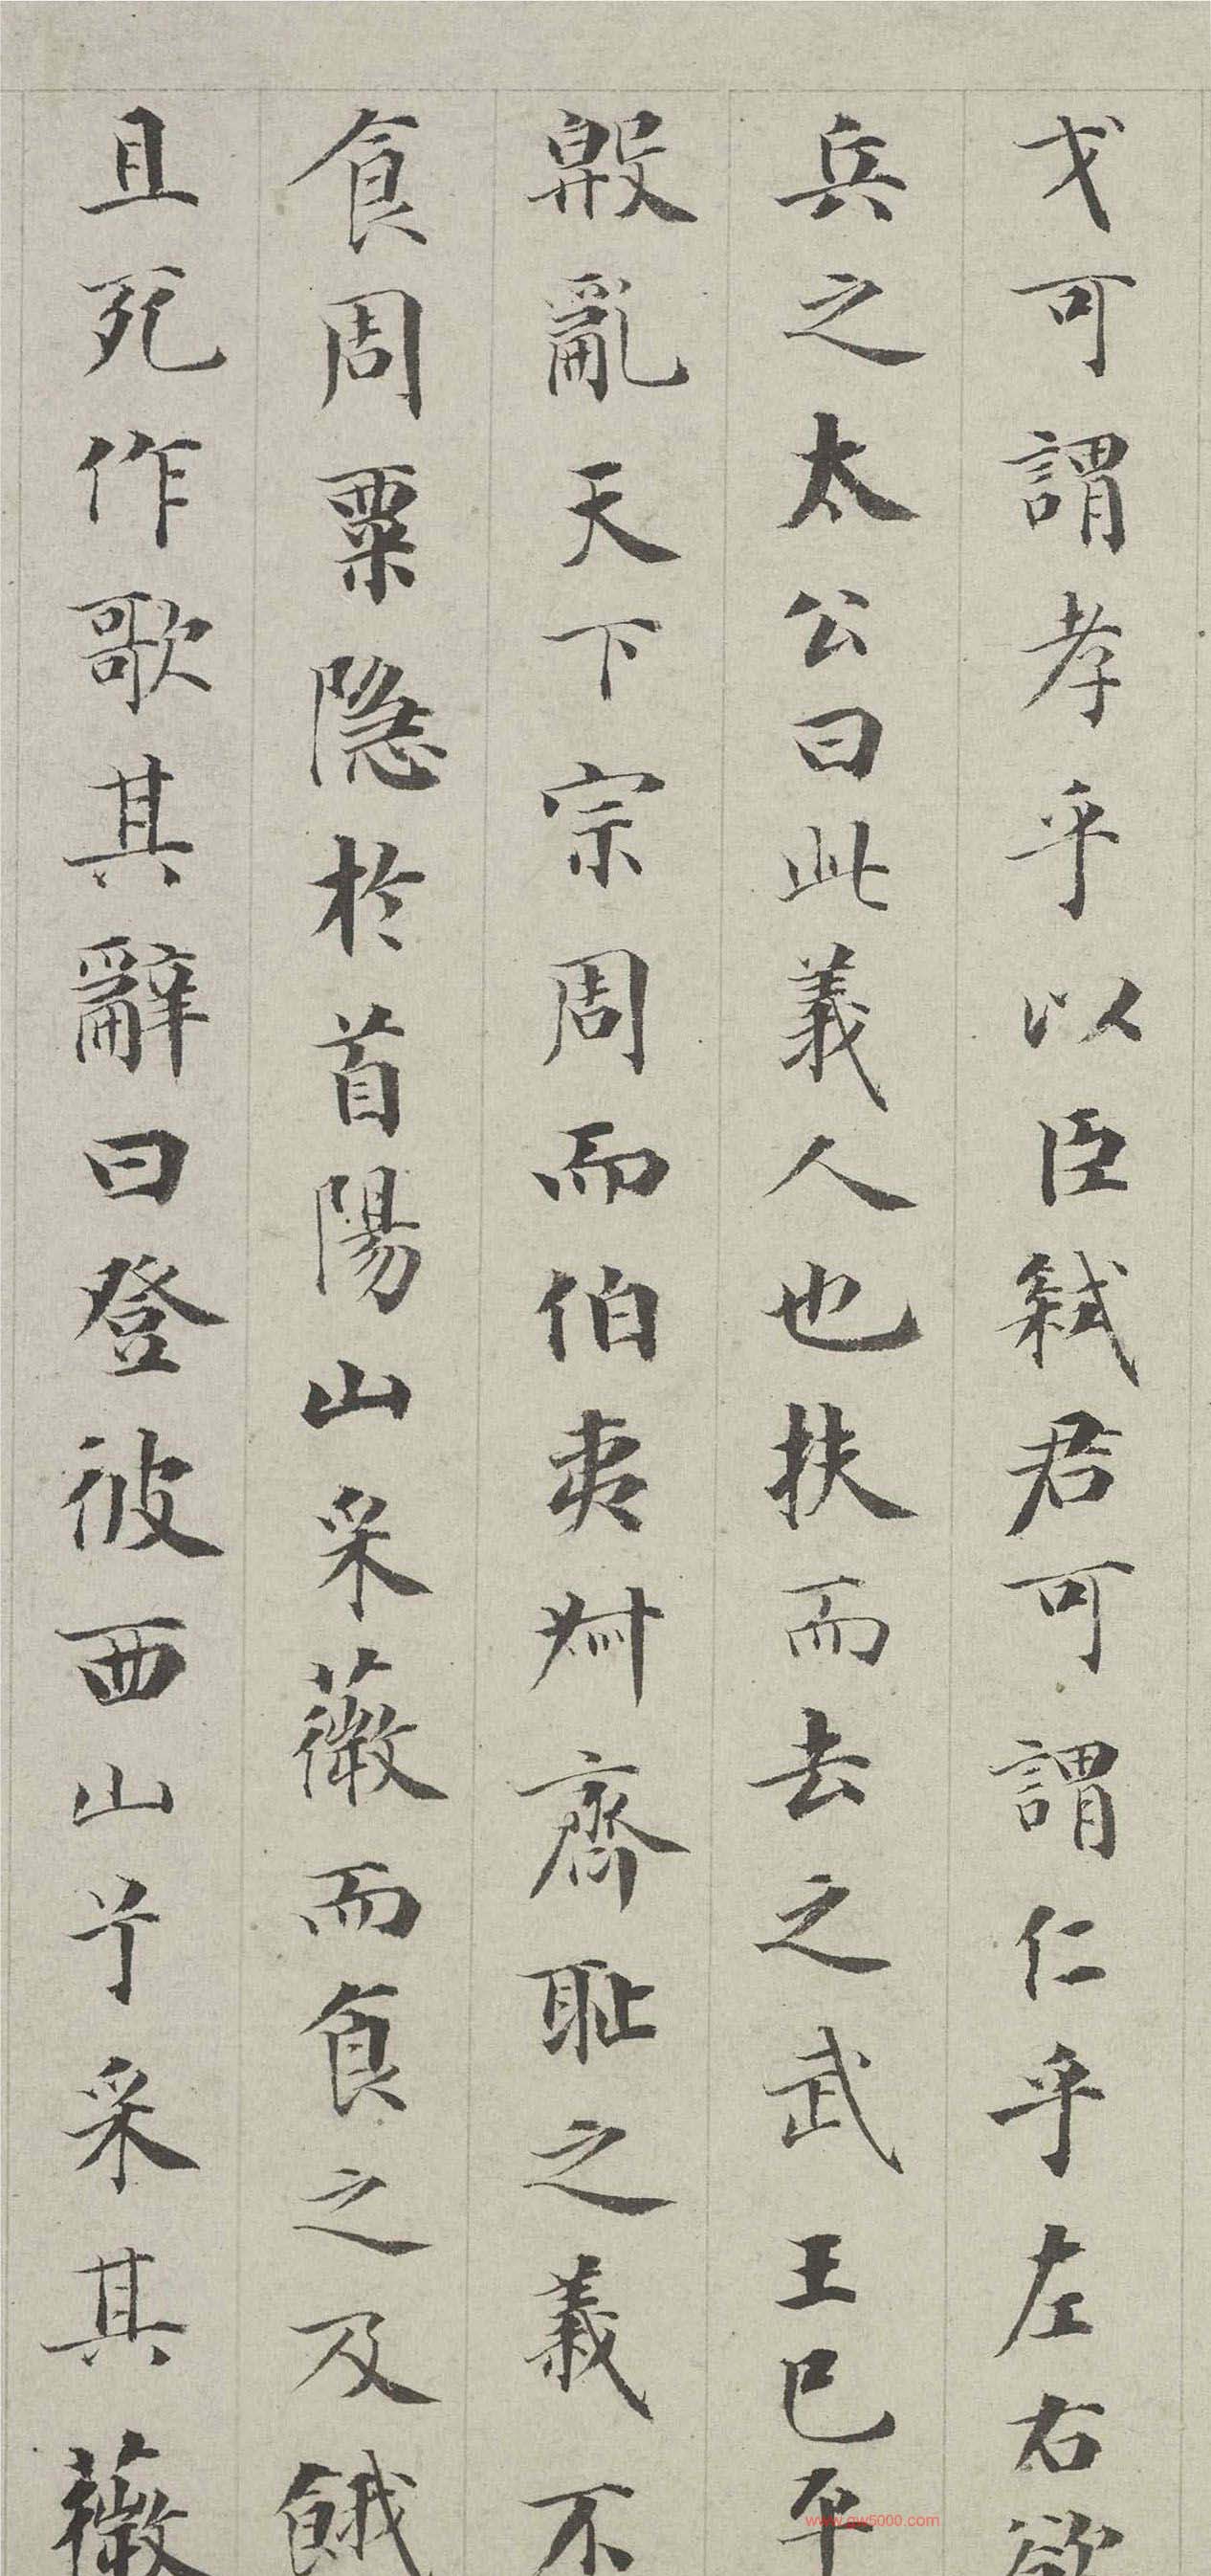 戈可謂孝乎以臣弒君可謂仁乎左右欲
兵之太公曰此義人也扶而去之武王已平
殷亂天下宗周而伯夷叔齊恥之義不
食周粟隱於首陽山采薇而食之及餓
且死作歌其辭曰登彼西山兮采其薇
www.gw5000.com